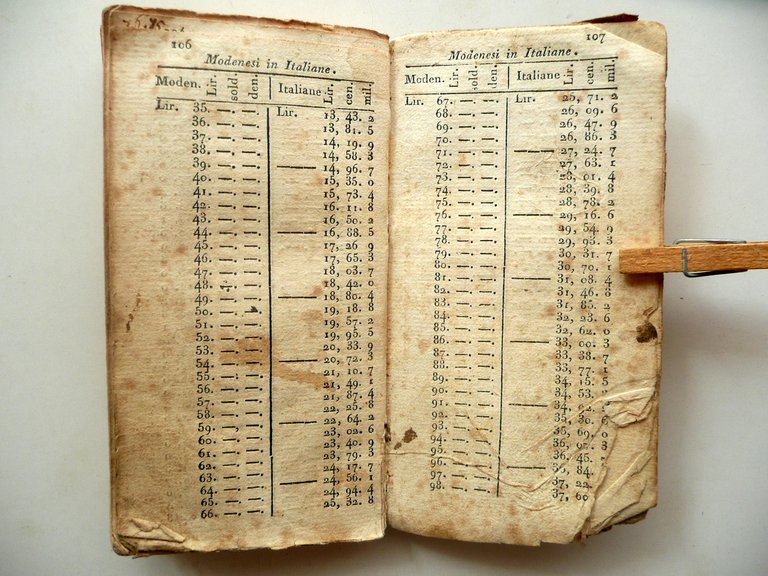 106
Modenesi in Italiane.
Moden. Lir. sold. den. Italiane Lir. cen. mil.
Lir. 35. —. —. Lir. 13, 43. 2
36. —. —. 13, 81. 5
37. —. —. 14, 19. 9
38. —. —. 14, 58. 3
39. —. —. —— 14, 96. 7
40. —. —. 15, 35. 0
41. —. —. 15, 73. 4
42. —. —. 16, 11. 8
43. —. —. 16, 50. 2
44. —. —. —— 16, 88. 5
45. —. —. 17, 26 9
46. —. —. 17, 65. 3
47. —. —. 18, 03. 7
48. —. —. 18, 42. 0
49. —. —. —— 18, 80. 4
50. —. —. 19, 18. 8
51. —. —. 19, 57. 2
52. —. —. 19, 95. 5
53. —. —. 20, 33. 9
54. —. —. —— 20, 72. 3
55. —. —. 21, 10. 7
56. —. —. 21, 49. 1
57. —. —. 21, 87. 4
58. —. —. 22, 25. 8
59. —. —. —— 22, 64. 2
60. —. —. 23, 02. 6
61. —. —. 23, 40. 9
62. —. —. 23, 79. 3
63. —. —. 24, 17. 7
64. —. —. —— 24, 56. 1
65. —. —. 24, 94. 4
66. —. —. 25, 32. 8
107
Modenesi in Italiane.
Moden. Lir. sold. den. Italiane Lir. cen. mil.
Lir. 67. —. —. Lir. 25, 71. 2
68. —. —. 26, 09. 6
69. —. —. 26, 47. 9
70. —. —. 26, 86. 3
71. —. —. —— 27, 24. 7
72. —. —. 27, 63. 1
73. —. —. 28, 01. 4
74. —. —. 28, 39. 8
75. —. —. 28, 78. 2
76. —. —. —— 29, 16. 6
77. —. —. 29, 54. 9
78. —. —. 29, 93. 3
79. —. —. 30, 31. 7
80. —. —. 30, 70. 1
81. —. —. —— 31, 08. 4
82. —. —. 31, 46. 8
83. —. —. 31, 85. 2
84. —. —. 32, 23. 6
85. —. —. 32, 62. 0
86. —. —. —— 33, 00. 3
87. —. —. 33, 38. 7
88. —. —. 33, 77. 1
89. —. —. 34, 15. 5
90. —. —. 34, 53.
91. —. —. —— 34,
92. —. —. 35, 30. 6
93. —. —. 35, 69. 0
94. —. —. 36, 3
95. —. —. 36, 45.
96. —. —. —— 36, 84.
97. —. —. 37, 22
98. —. —. 37, 60